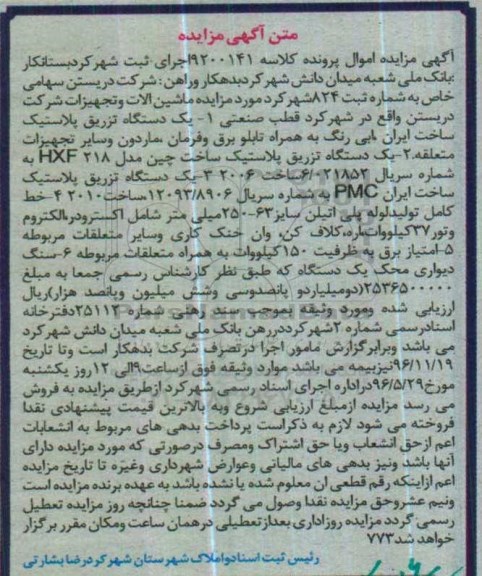 متن آگهی مزایده
آگهی مزایده اموال پرونده کلاسه ۹۲۰۰۱۴۱اجرای ثبت شهر کردبستانکار
:بانک ملی شعبه میدان دانش شهر کردبدهکار وراهن : شرکت دریستن سهامی
خاص به شماره ثبت ۸۲۴شهر کرد مورد مزایده ماشین الات وتجهیزات شرکت
دریستن واقع در شهرکرد قطب صنعتی ۱- یک دستگاه تزریق پلاستیک
ساخت ایران ،ابی رنگ به همراه تابلو برق وفرمان ،ماردون وسایر تجهیزات
متعلقه.۲-یک دستگاه تزریق پلاستیک ساخت چین مدل HXF ۲۱۸ به
شماره سریال ۶/۰۲۱۸۵۲ساخت ۲۰۰۶ ۳-یک دستگاه تزریق پلاستیک
ساخت ایران PMC به شماره سریال ۱۲۰۹۳/۸۹۰۶،ساخت۲۰۱۰ ۴-خط
کامل تولیدلوله پلی اتیلن سایز۶۳-۲۵۰میلی متر شامل اکسترودر،الکتروم
وتور۳۷کیلووات،اره،کلاف کن، وان خنک کاری وسایر متعلقات مربوطه
۵-امتیاز برق به ظرفیت ۱۵۰کیلووات به همراه متعلقات مربوطه ۶-سنگ
دیواری محک یک دستگاه که طبق نظر کارشناس رسمی جمعا به مبلغ
۲۵۳۶۵۰۰۰۰۰(دومیلیاردو پانصدوسی وشش میلیون وپانصد هزار)ریال
ارزیابی شده ومورد وثیقه بموجب سند رهنی شماره ۲۵۱۱۳دفترخانه
اسنادرسمی شماره ۲شهرکرددررهن بانک ملی شعبه میدان دانش شهر کرد
می باشد وبرابرگزارش مامور اجرا درتصرف شرکت بدهکار است وتا تاریخ
۹۶/۱۱/۱۹نیزبیمه می باشد موارد وثیقه فوق ازساعت۹الی ۱۲روز یکشنبه
مورخ۹۶/۵/۲۹دراداره اجرای اسناد رسمی شهر کرد ازطریق مزایده به فروش
می رسد مزایده ازمبلغ ارزیابی شروع وبه بالاترین قیمت پیشنهادی نقدا
فروخته می شود لازم به ذکراست پرداخت بدهی های مربوط به انشعابات
اعم ازحق انشعاب ویا حق اشتراک ومصرف درصورتی که مورد مزایده دارای
آنها باشد ونیز بدهی های مالیاتی وعوارض شهرداری وغیره تا تاریخ مزایده
اعم ازاینکه رقم قطعی ان معلوم شده یا نشده باشد به عهده برنده مزایده است
ونیم عشروحق مزایده نقدا وصول می گردد ضمنا چنانچه روز مزایده تعطیل
رسمی گردد مزایده روزاداری بعدازتعطیلی درهمان ساعت ومکان مقرر برگزار
خواهد شد۷۷۳
رئیس ثبت اسنادواملاک شهرستان شهرکردرضا بشارتی